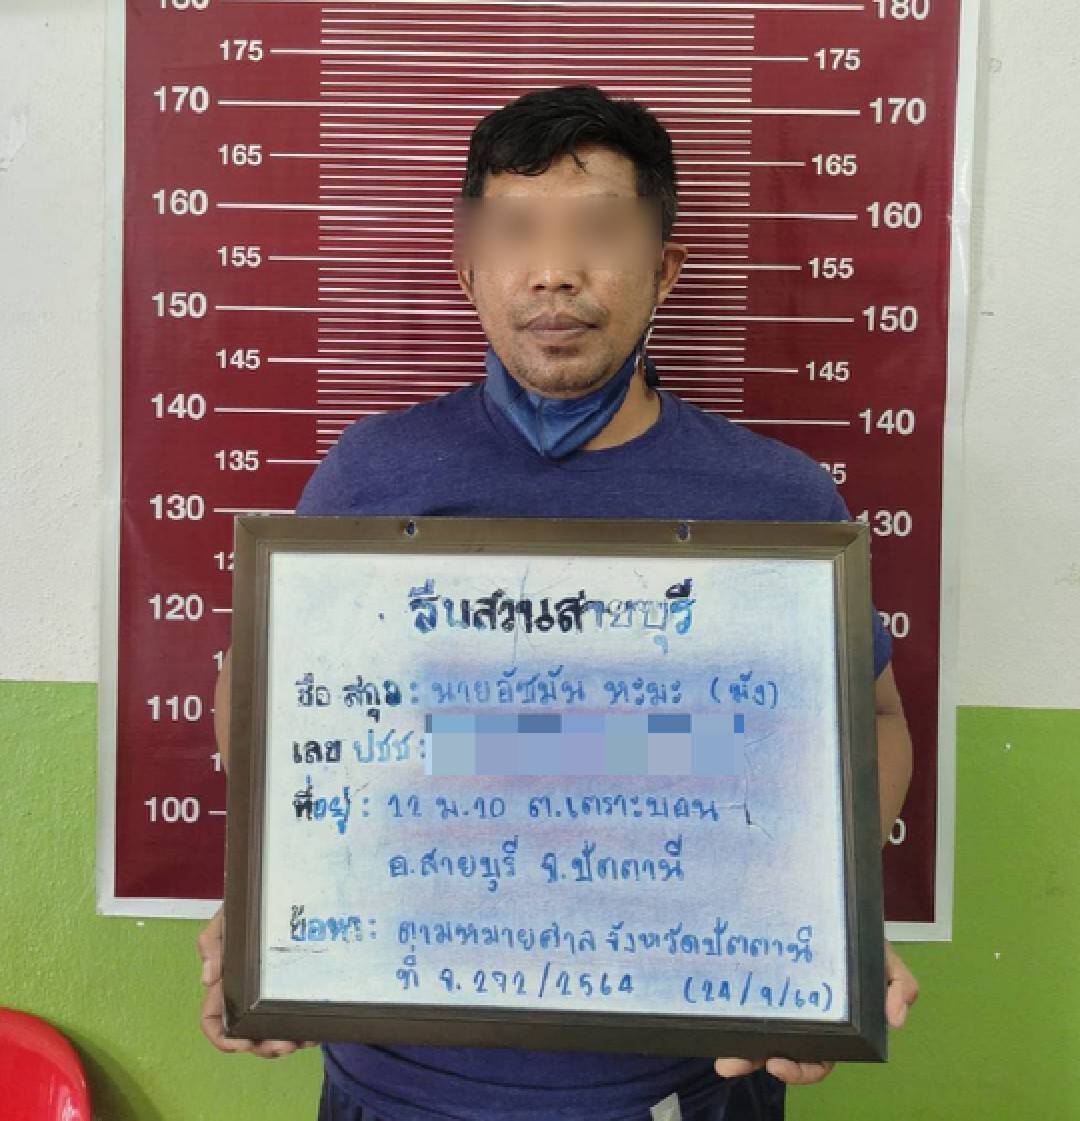 180 180
175 175
170 170
165 165
160 160
155 155
150 150
145 145
140 140
135
130 130
120
110
100
สืบสวนสายบุรี
ชื่อ สกุล : นายอัซมัน หะมะ (มัง)
เลข ปชช :
ที่อยู่ : 22 ม.10 ต.เตราะบอน
อ.สายบุรี จ.ปัตตานี
ข้อหา : ตามหมายศาลจังหวัดปัตตานี
ที่ จ.272/2564 (24/9/64)